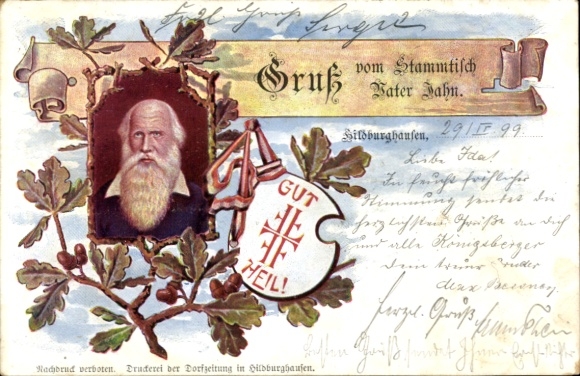 Gruß
vom Stammtisch
Vater Jahn.
Hildburghausen, 29/IV 99
Liebe Ida!
In feucht fröhlicher
Stimmung sendet die
herzlichsten Grüße an dich
und alle Königsberger
dein treuer Bruder
Max
Herzl. Gruß
Besten Gruß sendet Ihnen
GUT
HEIL!
Nachdruck verboten. Druckerei der Dorfzeitung in Hildburghausen.